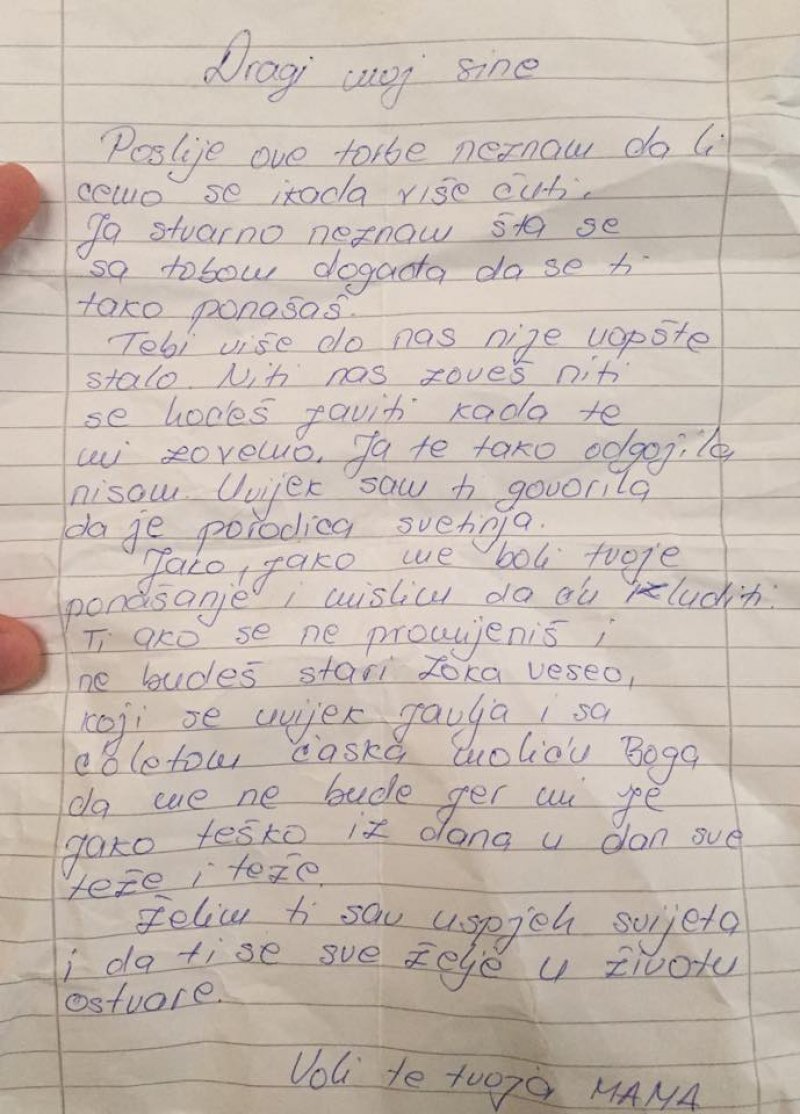 Dragi moj sine
Poslije ove torbe neznam da li
ćemo se ikada više čuti.
Ja stvarno neznam šta se
sa tobom događa da se ti
tako ponašaš.
Tebi više do nas nije uopšte
stalo. Niti nas zoveš niti
se hoćeš javiti kada te
mi zovemo. Ja te tako odgojila
nisam. Uvijek sam ti govorila
da je porodica svetinja.
Jako, jako me boli tvoje
ponašanje i mislim da ću izluditi.
Ti ako se ne promijeniš i
ne budeš stari Zoka veseo,
koji se uvijek javlja i sa
čoletom ćaska moliću Boga
da me ne bude jer mi je
jako teško iz dana u dan sve
teže i teže.
Želim ti sav uspjeh svijeta
i da ti se sve želje u životu
ostvare.
Voli te tvoja MAMA